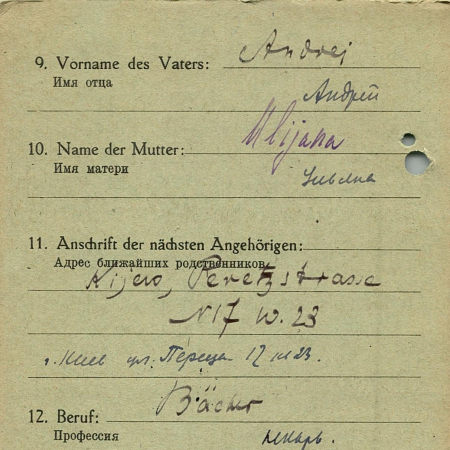 9. Vorname des Vaters: Andrej
Имя отца
Андрей
10. Name der Mutter: Ulijana
Имя матери
Ульяна
11. Anschrift der nächsten Angehörigen:
Адрес ближайших родственников
Kijew, Peretzstrasse
N17 W. 23
г. Киев ул. Переца 17 кв 23.
12. Beruf: Bäcker
Профессия пекарь.